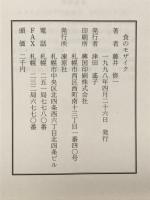 食のモザイク
著者　藤井　修一
一九九八年四月二十六日　発行
発行者　津田　遙子
札幌市西区西町南十三丁目一番四〇号
印刷所　興国印刷株式会社
発行所　凍原社
札幌市中央区北四条西六丁目北四条ビル
電話　札幌　二五一局七七八〇番
FAX　札幌　二三二局六七七〇番
頒価　二千円